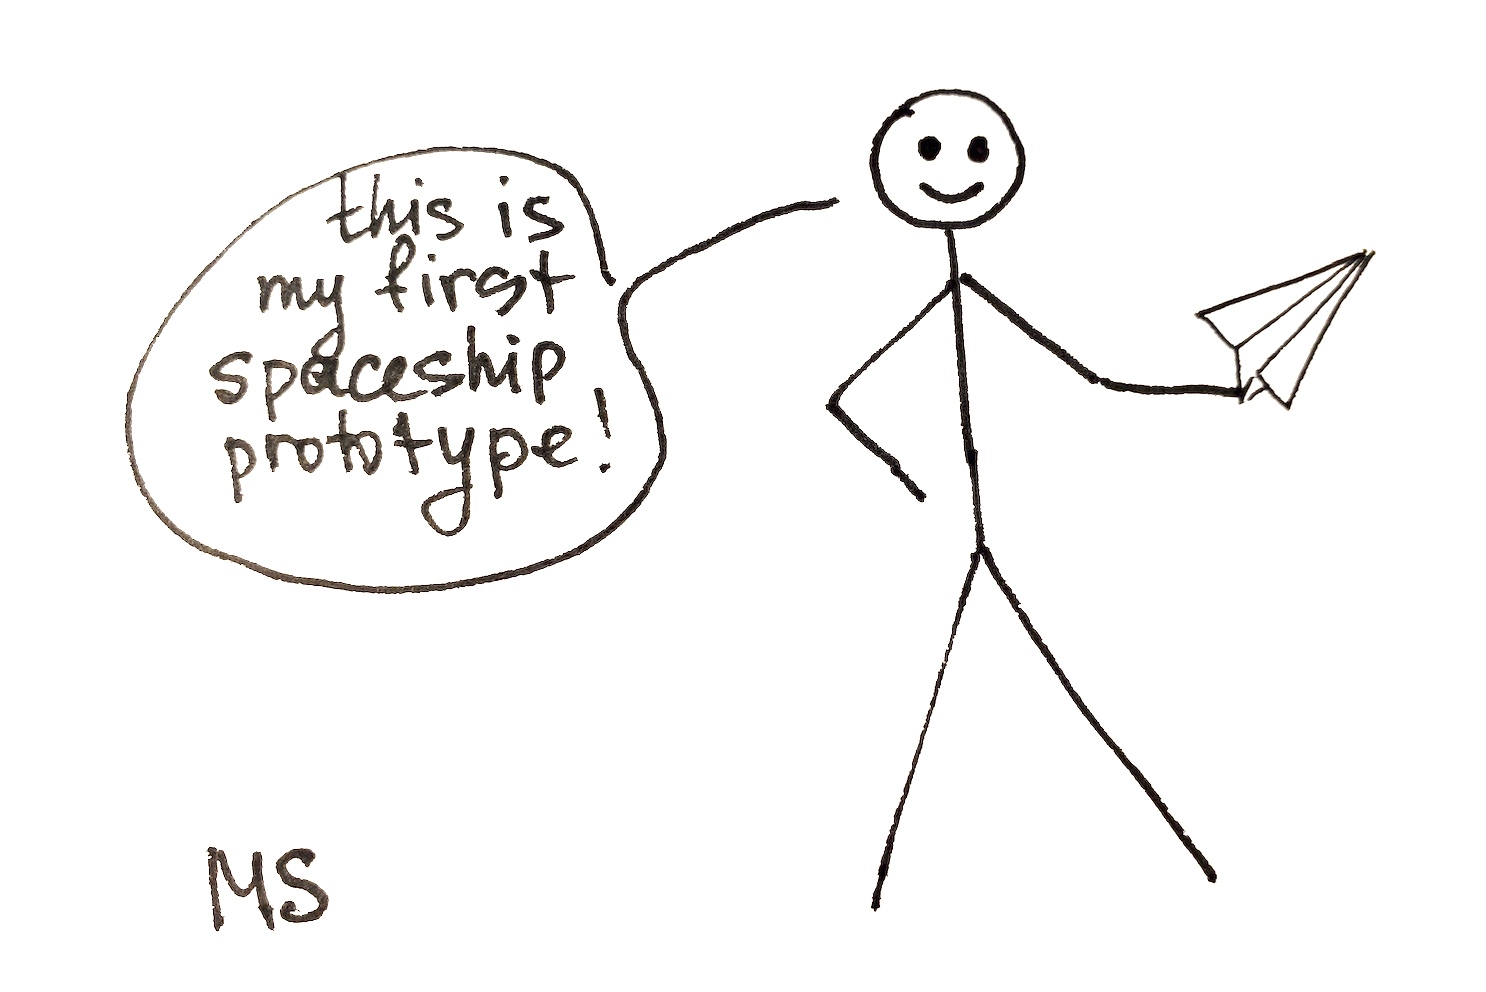 this is
my first
spaceship
prototype!
MS